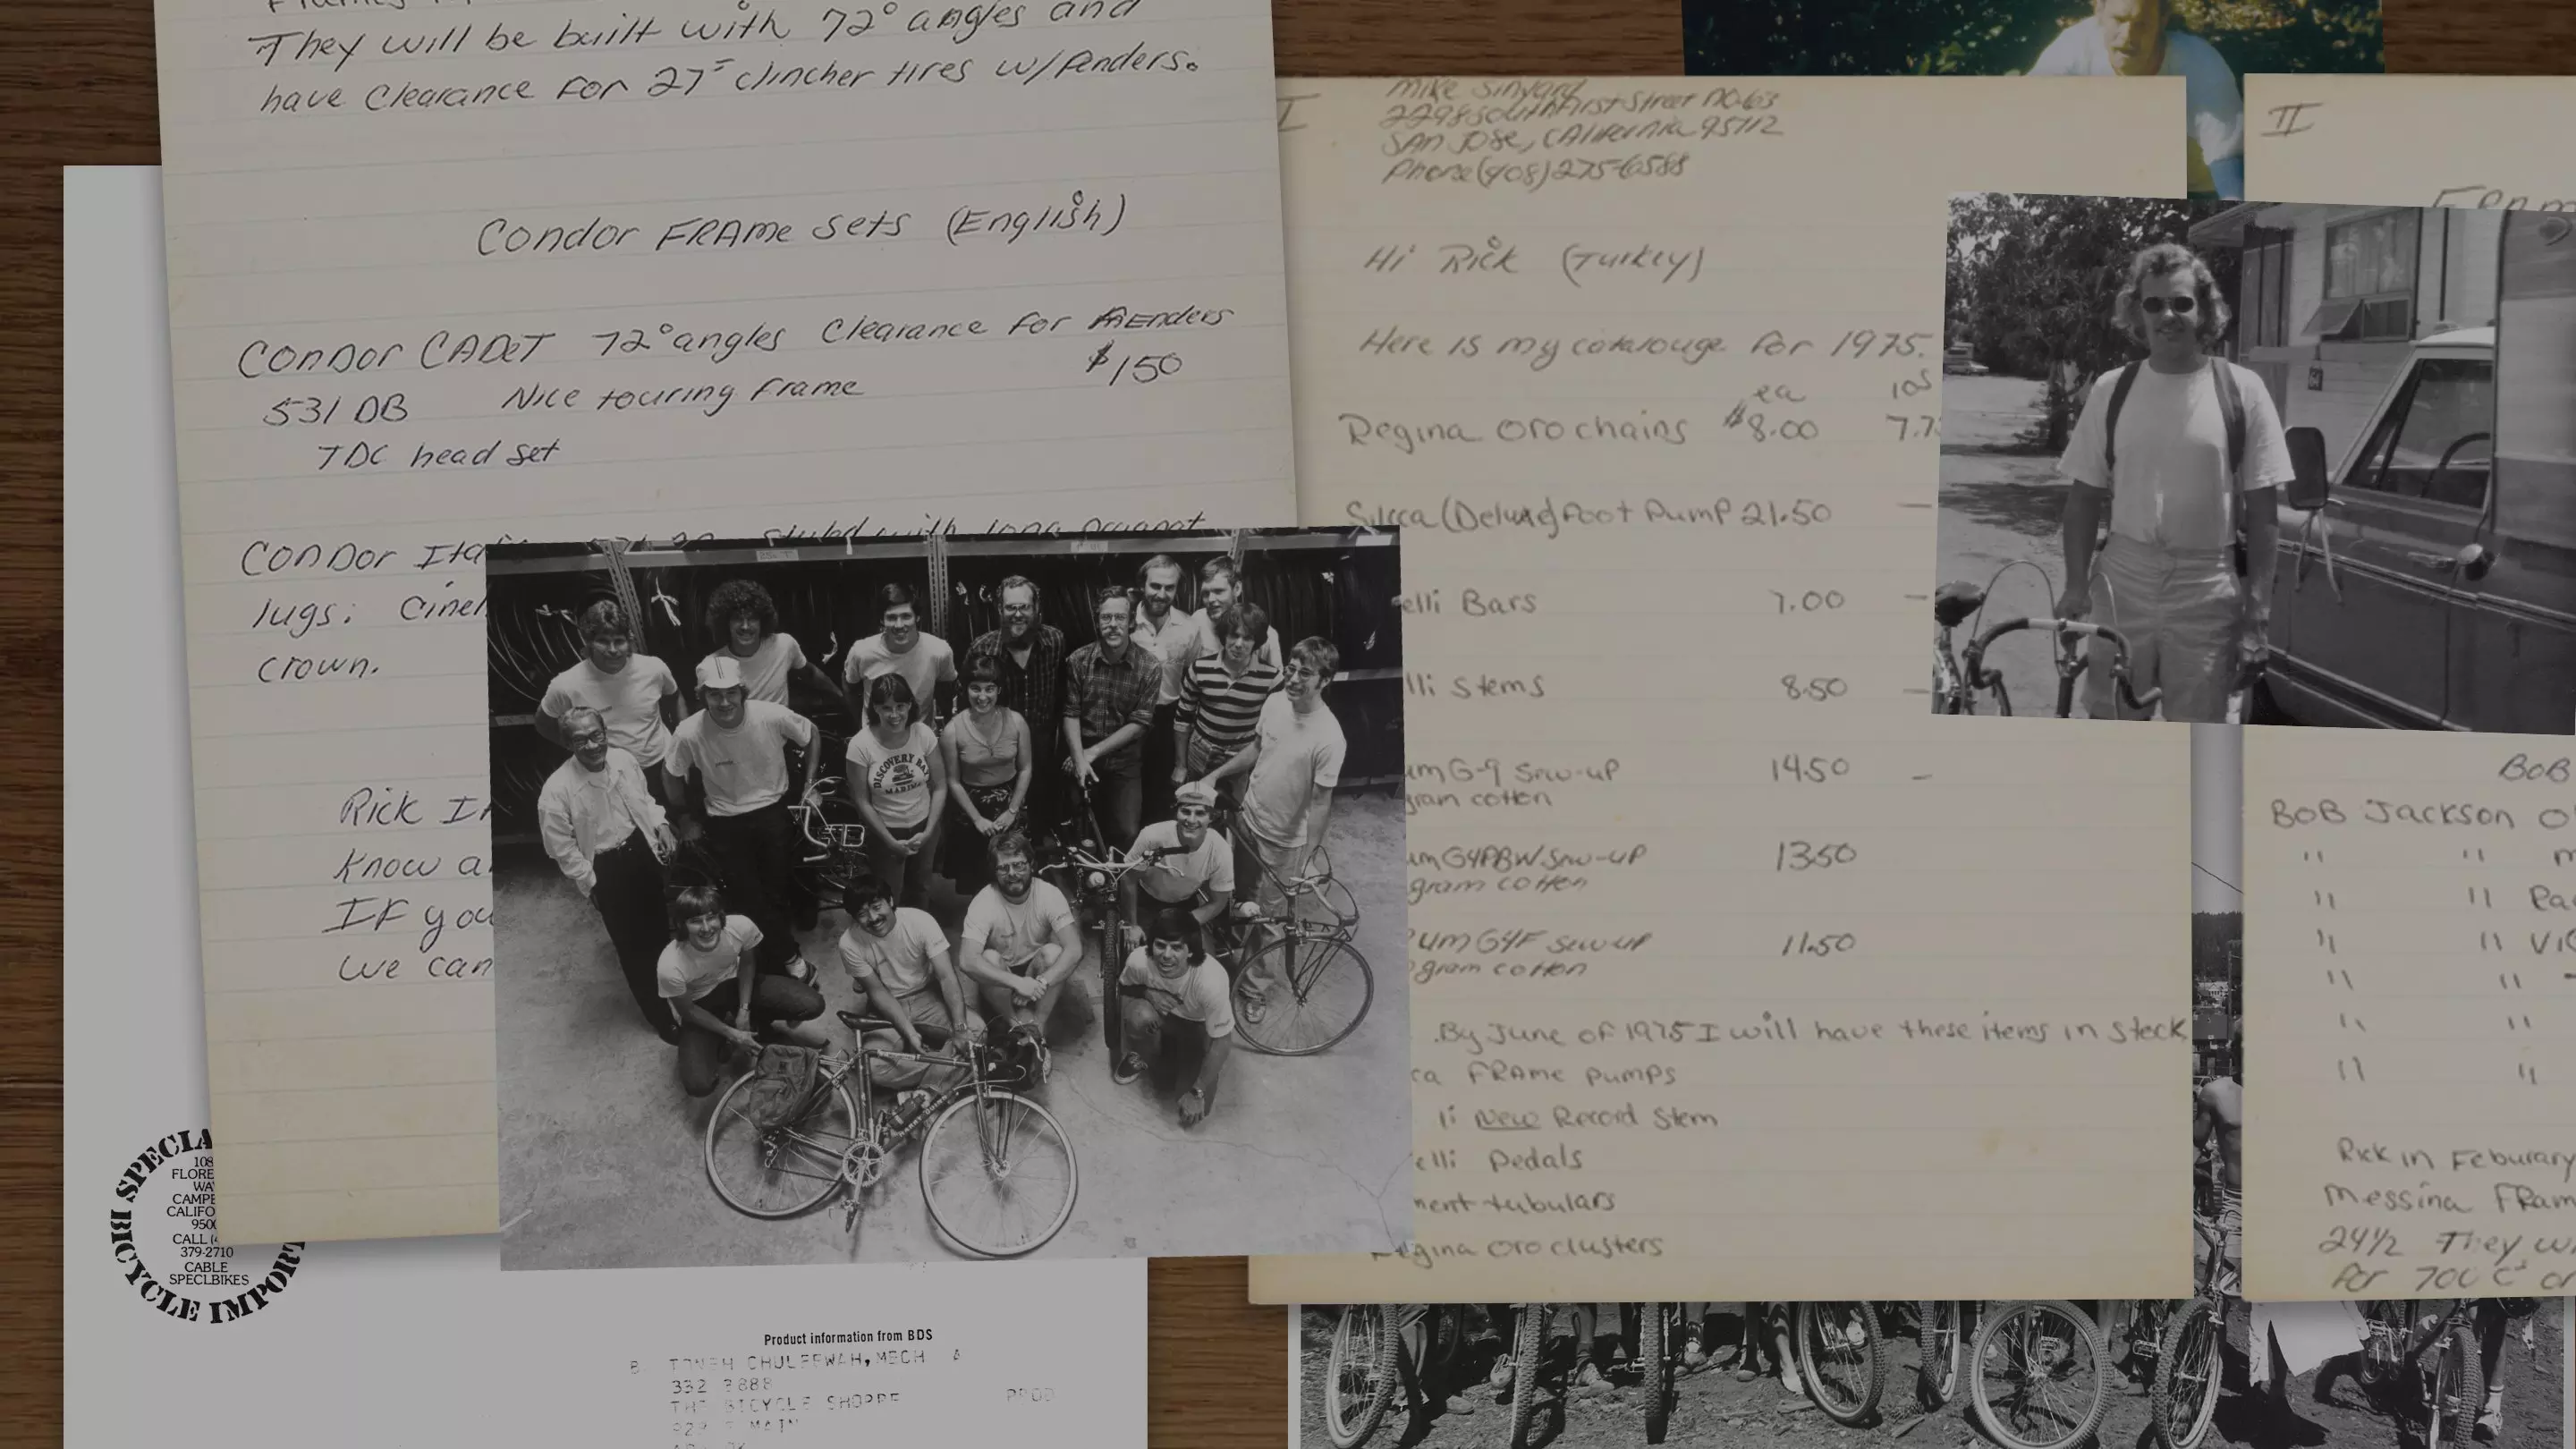 They will be built with 72° angles and
have Clearance for 27" clincher tires w/fenders.
Condor FRAme Sets (English)
Condor CADeT 72° angles Clearance for Fenders
$150
531 DB Nice touring frame
TDC head set
Condor Ita
lugs. Cinel
crown.
Rick I
know a
If you
we can
SPECIA
BICYCLE IMPORT
108
FLORE
WA
CAMPE
CALIFO
950
CALL (4
379-2710
CABLE
SPECLBIKES
Product information from BDS
332 3888
THE BICYCLE SHOPPE
MAIN
DISCOVERY BA
MARINA
I
Mike Sinyard
2298 South First Street no. 63
SAn JOSe, CAliFornia 95112
Phone (408) 275-6588
Hi Rick (Turkey)
Here is my catalouge for 1975.
ea 10s
Regina Oro chains $8.00 7.7
Silca (Deluxe) Foot Pump 21.50 —
elli Bars 7.00 —
lli Stems 8.50 —
um G-9 Sew-up 14.50 —
gram cotton
um G4PBW Sew-up 13.50
gram cotton
um G4F sew-up 11.50
gram cotton
By June of 1975 I will have these items in stock
ca FRAme pumps
li New Record Stem
elli Pedals
ment tubulars
Regina Oro clusters
II
BoB
BoB Jackson O
" " m
" " Ra
" " Vi
" "
" "
" "
Rick in Feburary
Messina Fram
24½ They w
For 700 C's or